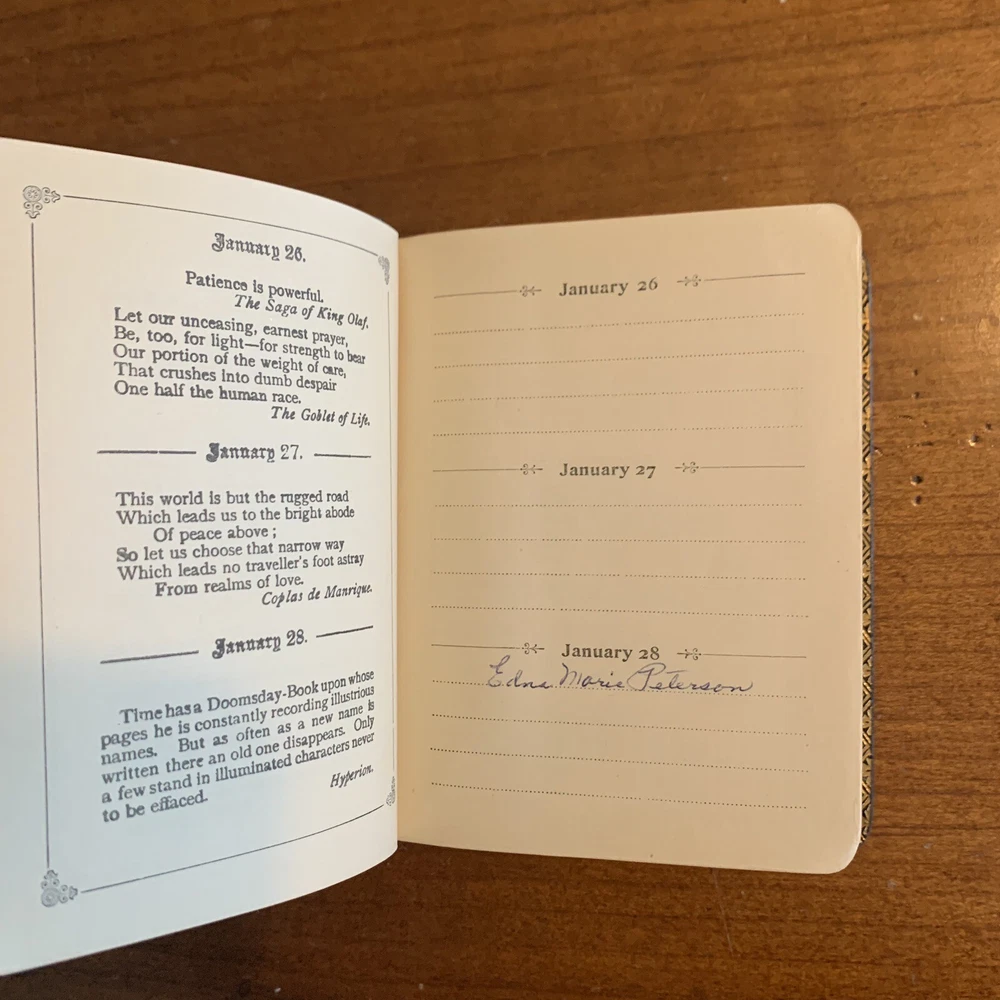 January 26.
Patience is powerful.
The Saga of King Olaf.
Let our unceasing, earnest prayer,
Be, too, for light—for strength to bear
Our portion of the weight of care,
That crushes into dumb despair
One half the human race.
The Goblet of Life.
January 27.
This world is but the rugged road
Which leads us to the bright abode
Of peace above ;
So let us choose that narrow way
Which leads no traveller's foot astray
From realms of love.
Coplas de Manrique.
January 28.
Time has a Doomsday-Book upon whose
pages he is constantly recording illustrious
names. But as often as a new name is
written there an old one disappears. Only
a few stand in illuminated characters never
to be effaced.
Hyperion.
January 26
January 27
January 28
Edna Marie Peterson